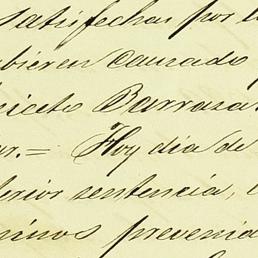 satisfechas por l
ubieren causado
niceto Barraza
ur.= Hoy dia de
terior sentencia,
minos preveni